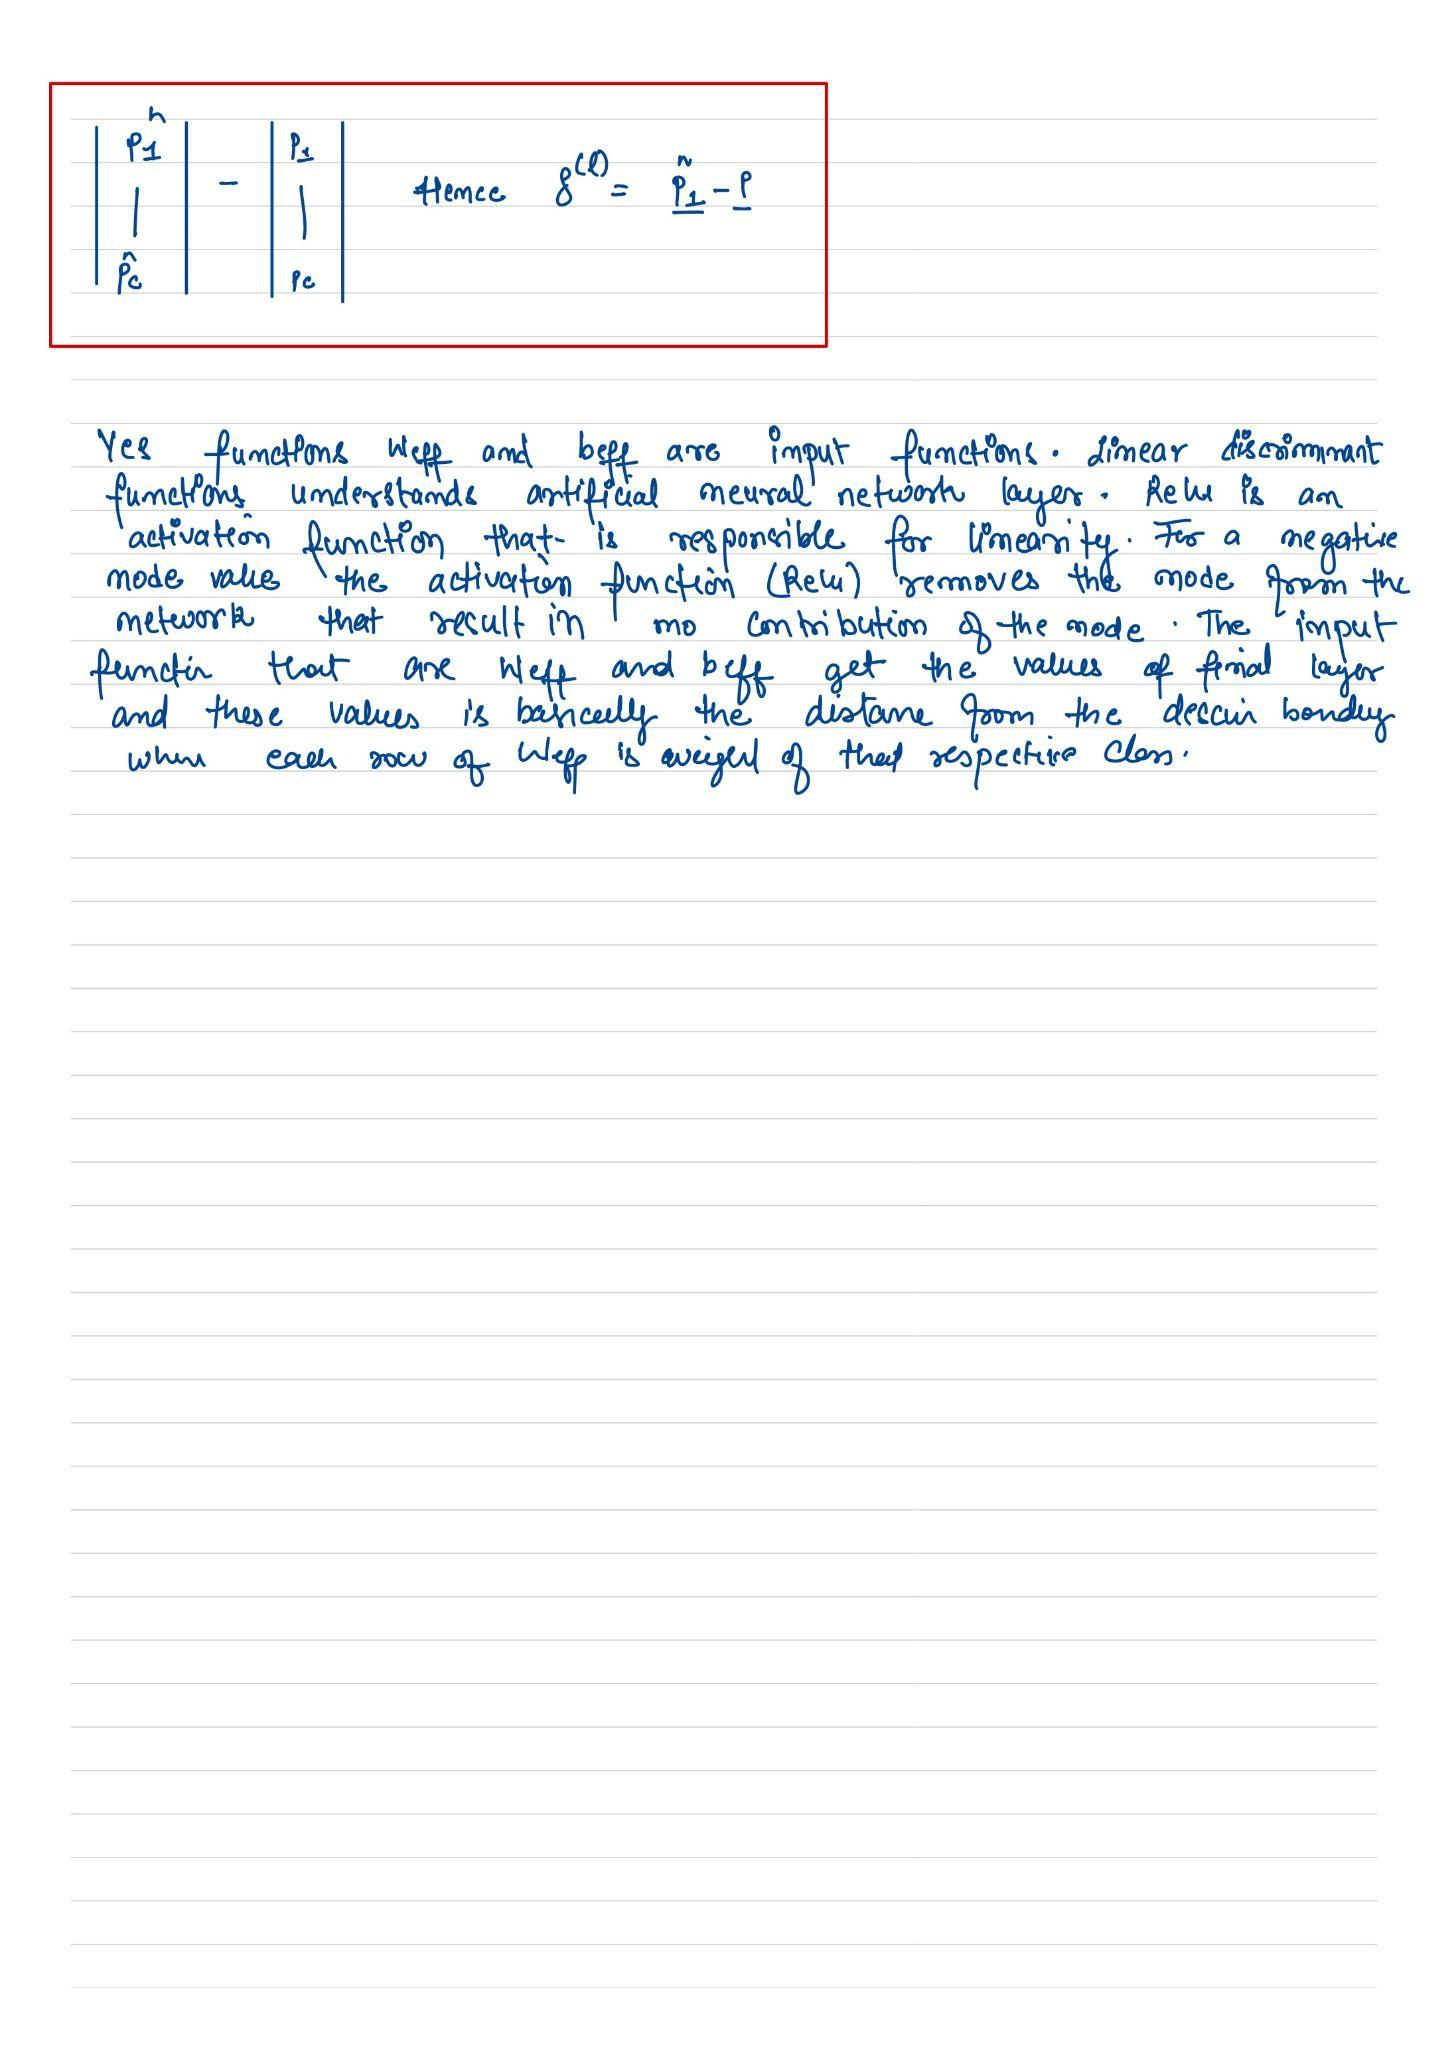 P̂1 - P1 Hence δ^(l) = P̂1 - P
P̂c Pc
Yes functions Weff and beff are input functions. Linear discriminant
functions understands artificial neural network layer. Relu is an
activation function that is responsible for linearity. For a negative
node value the activation function (Relu) removes the node from the
network that result in no contribution of the node. The input
functin that are Weff and beff get the values of final layer
and these values is basically the distane from the bondry
when each row of Weff is weight of that respective class.